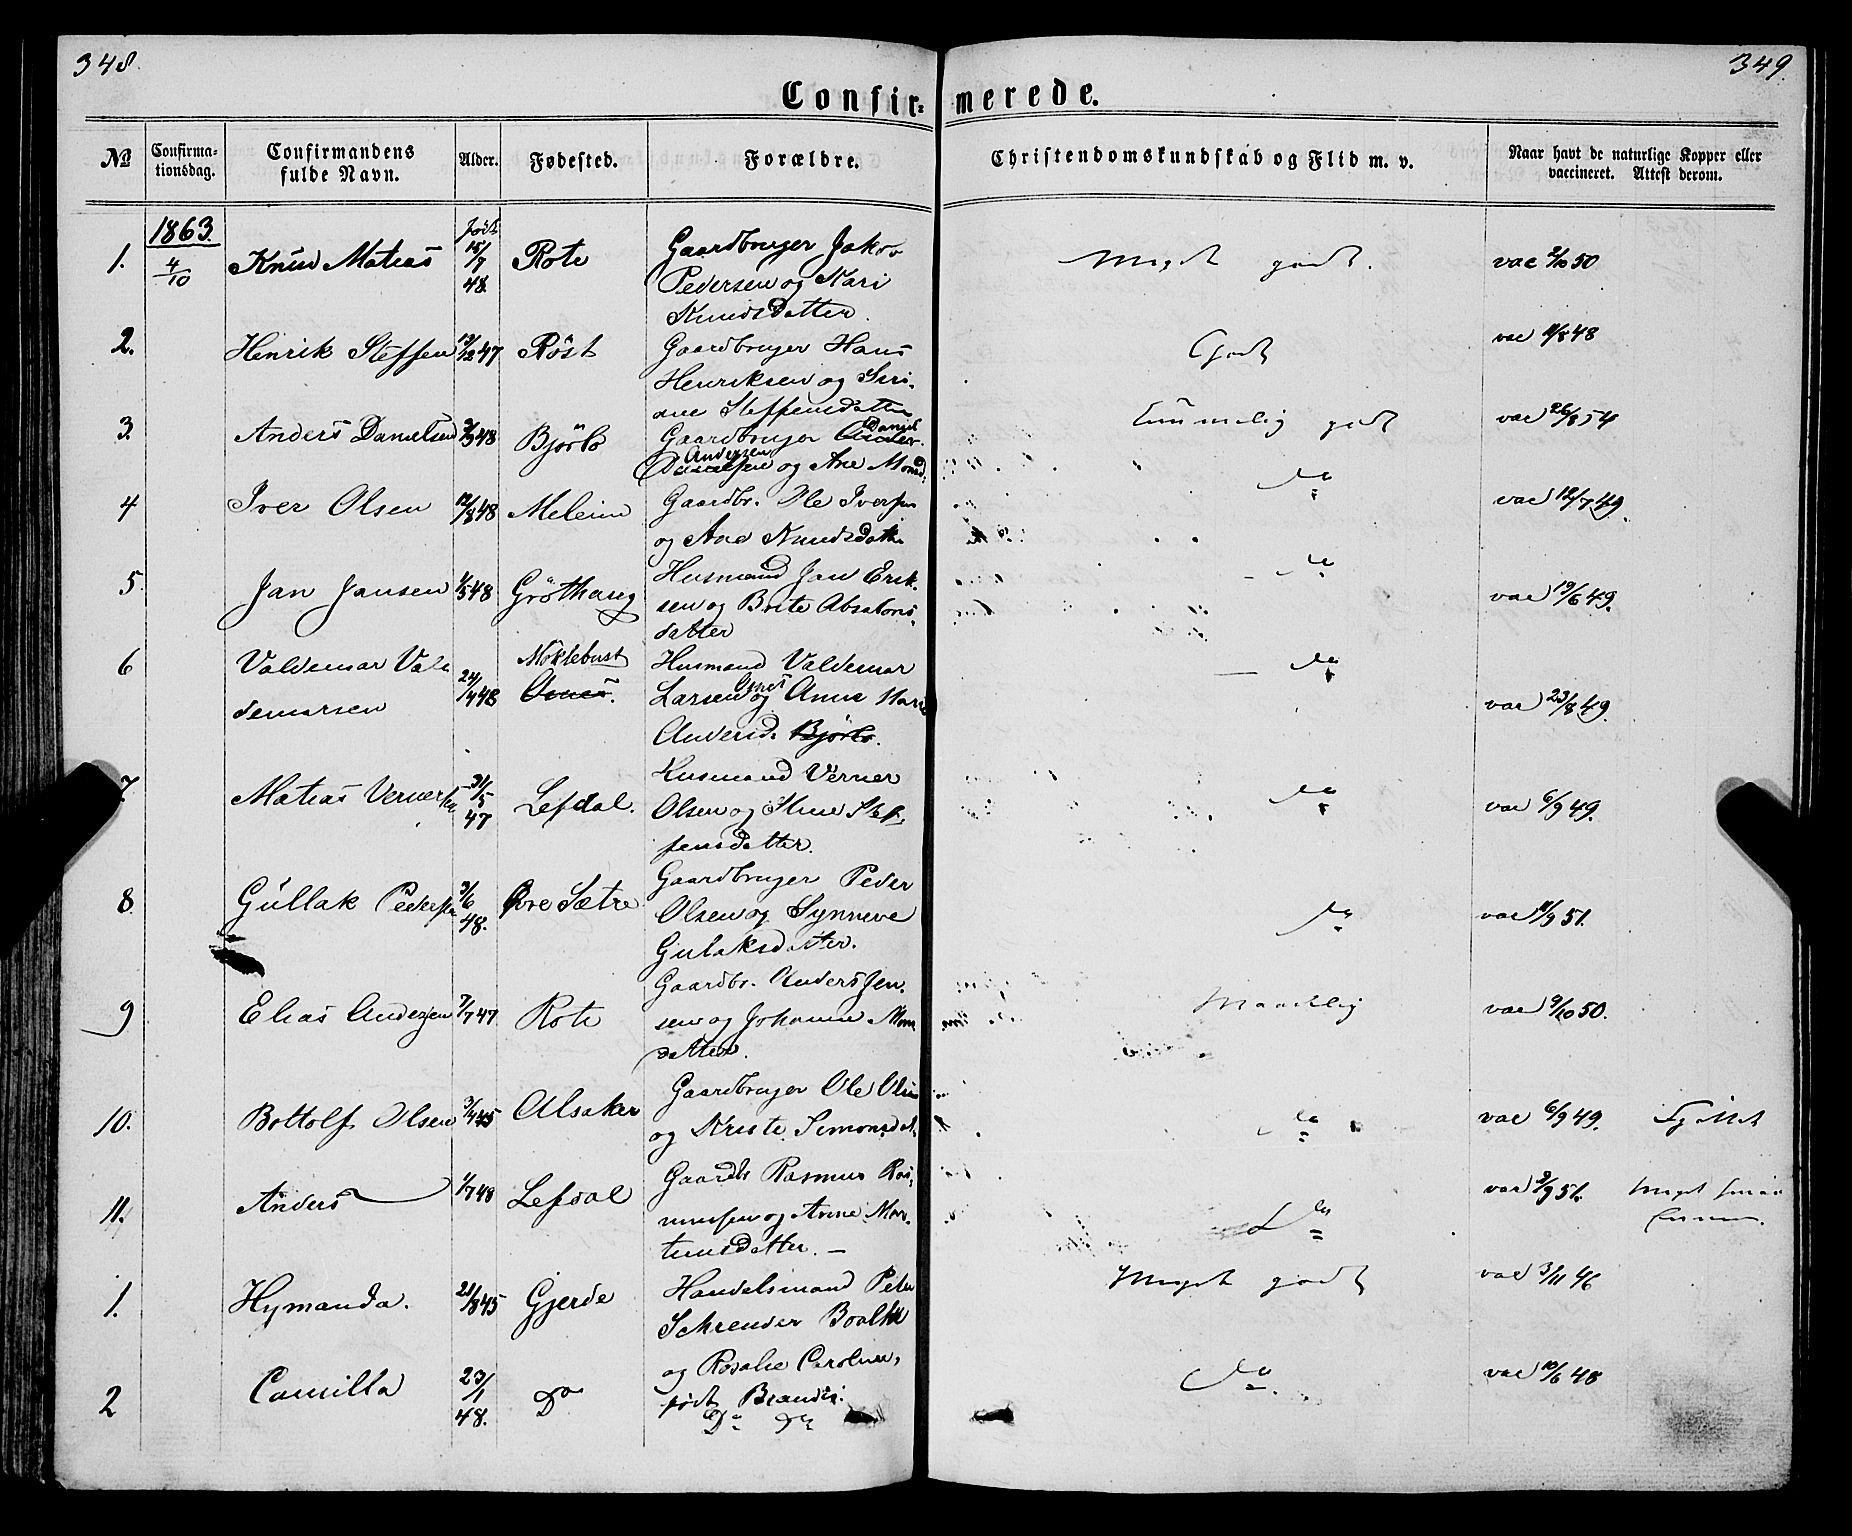 348.
349.
Confirmerede.
№
Confirmationsdag.
Confirmandens fulde Navn.
Alder.
Fødested.
Forældre.
Christendomskundskab og Flid m. v.
Naar havt de naturlige Kopper eller vaccineret. Attest derom.
1863.
1. 4/10 Knud Matias født 15/7 48. Rote Gaardbruger Jakob Meget godt. vac 2/10 50
Pedersen og Kari
Knudsdatter.
2. Henrik Steffen 19/12 47 Röst Gaardbruger Hans Godt vac 11/8 48
Henriksen og Seri-
ane Steffensdatter
3. Anders Danielsen 3/9 48 Bjørlo Gaardbruger Daniel temmelig godt vac 26/8 54
Andersen og Ane Monsd.
4 Iver Olsen 12/8 48 Meleim Gaardbr. Ole Iversen do vac 12/7 49.
og Ane Knudsdatte
5. Jan Jansen 1/5 48 Grøthaug Husmand Jan Erik- do vac 19/6 49.
sen og Brite Absalons-
datter
6 Valdemar Val Nøklebust Husmand Valdemar do
demarsen 24/4 48 Osnes. Larsen Osnes og Anne Marie vac 23/8 49.
Andersd. Bjørlo.
7. Matias Vernersen 31/5 47 Lefdal. Husmand Verner do vac 6/9 49.
Olsen og Stef-
fensdatter.
8. Gullak Pedersen 3/6 48. Øvre Sætre Gaardbruger Peder do vac 11/9 51.
Olsen og Synneve
Gulaksdatter.
9 Elias Andersen 7/7 47 Rote Gaardbr. Anders Jen- Maadelig vac 9/10 50.
sen og Johanne Mons
datter.
10. Bottolf Olsen 3/4 45 Alsaker Gaardbruger Ole Olsen do vac 6/9 49.
og Kriste Simonsdat.
11. Anders 1/7 48 Lefdal Gaardbr Rasmus Ras- do vac 3/9 51. Meget
mussen og Anne Mor-
tensdatter. —
1. Hymanda. 21/8 45 Gjerde Handelsmand Peter Meget godt vac 3/11 46
Schreuder
2 Camilla 23/1 48. Do og Rosalie Caroline, do. vac 10/6 48
født Brandt.
Do Do